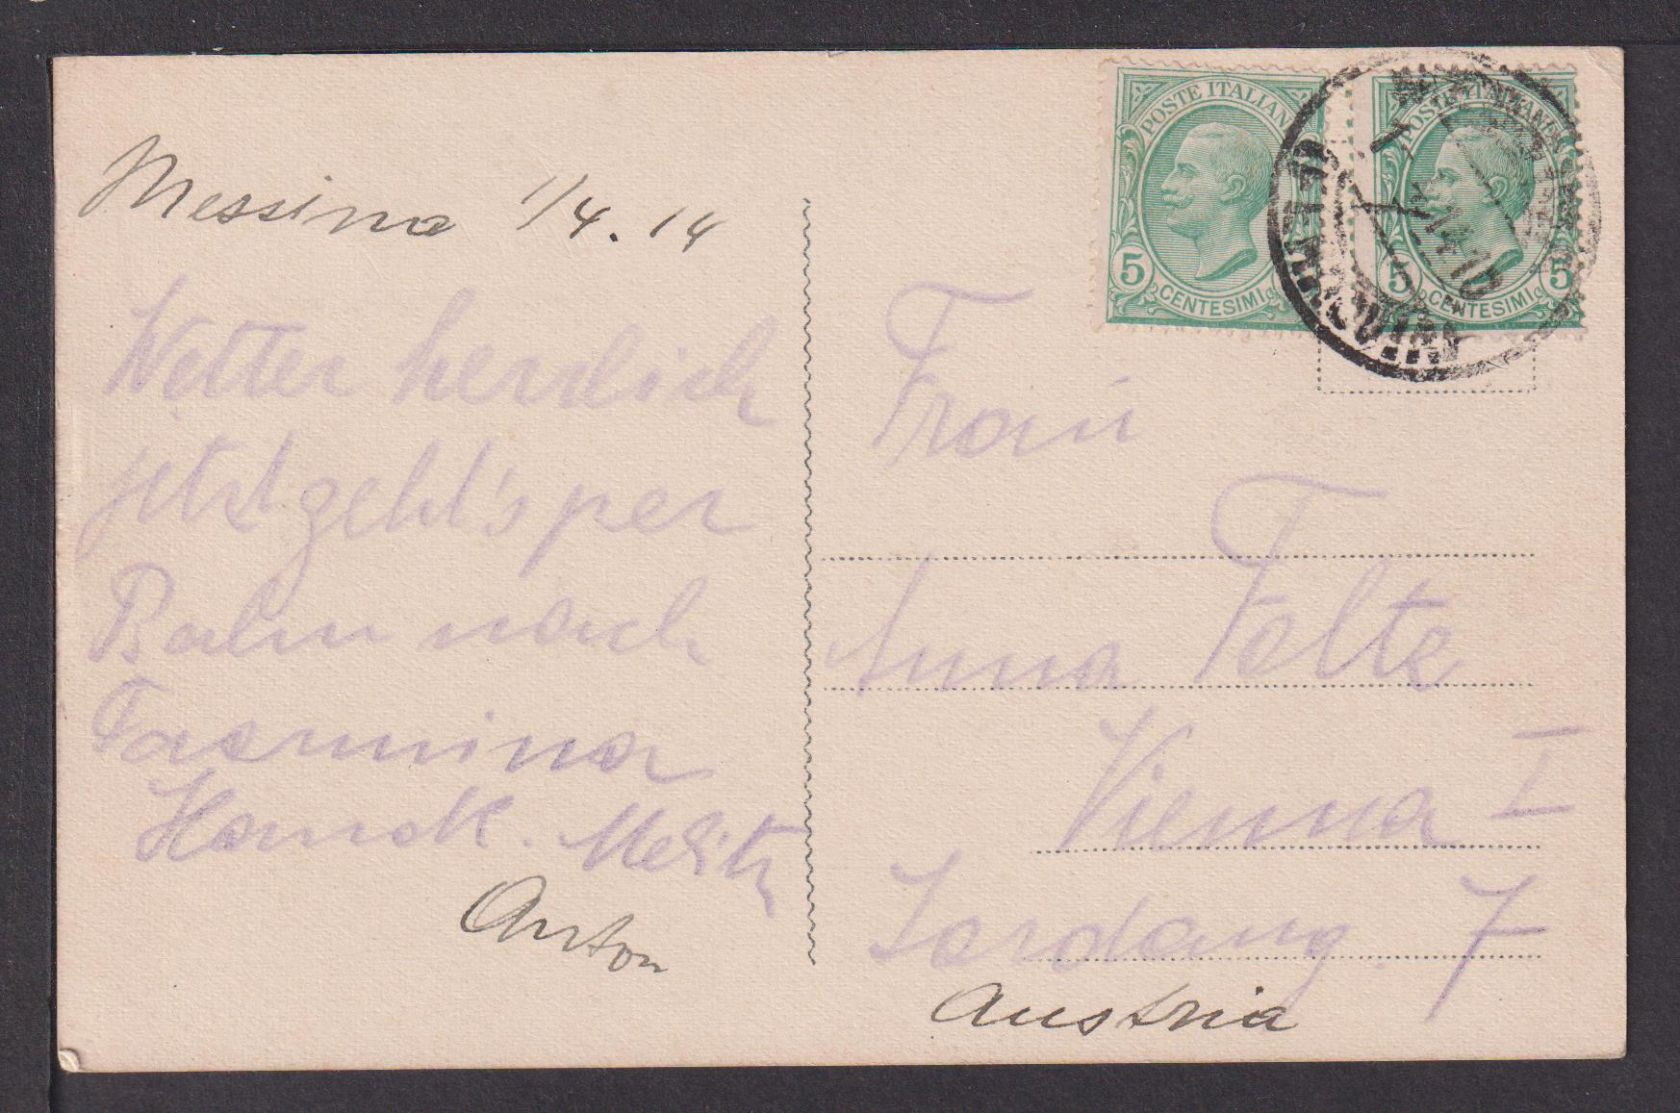 Messina 1/4. 14
Wetter herrlich
jetzt geht's per
Bahn nach
Taormina
Anton
POSTE ITALIANE
5
CENTESIMI
POSTE ITALIANE
5 5
CENTESIMI
Frau
Anna Felte
Vienna I
Jordang. 7
Austria